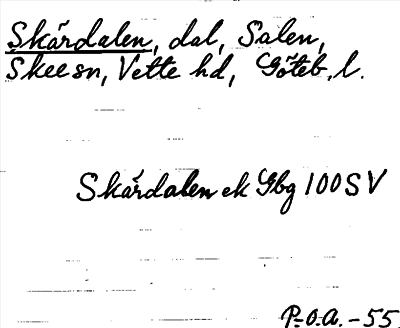 Skårdalen, dal, Salen,
Skee sn, Vette hd, Göteb. l.
Skårdalen ek Gbg 100 SV
P.O.A. -55